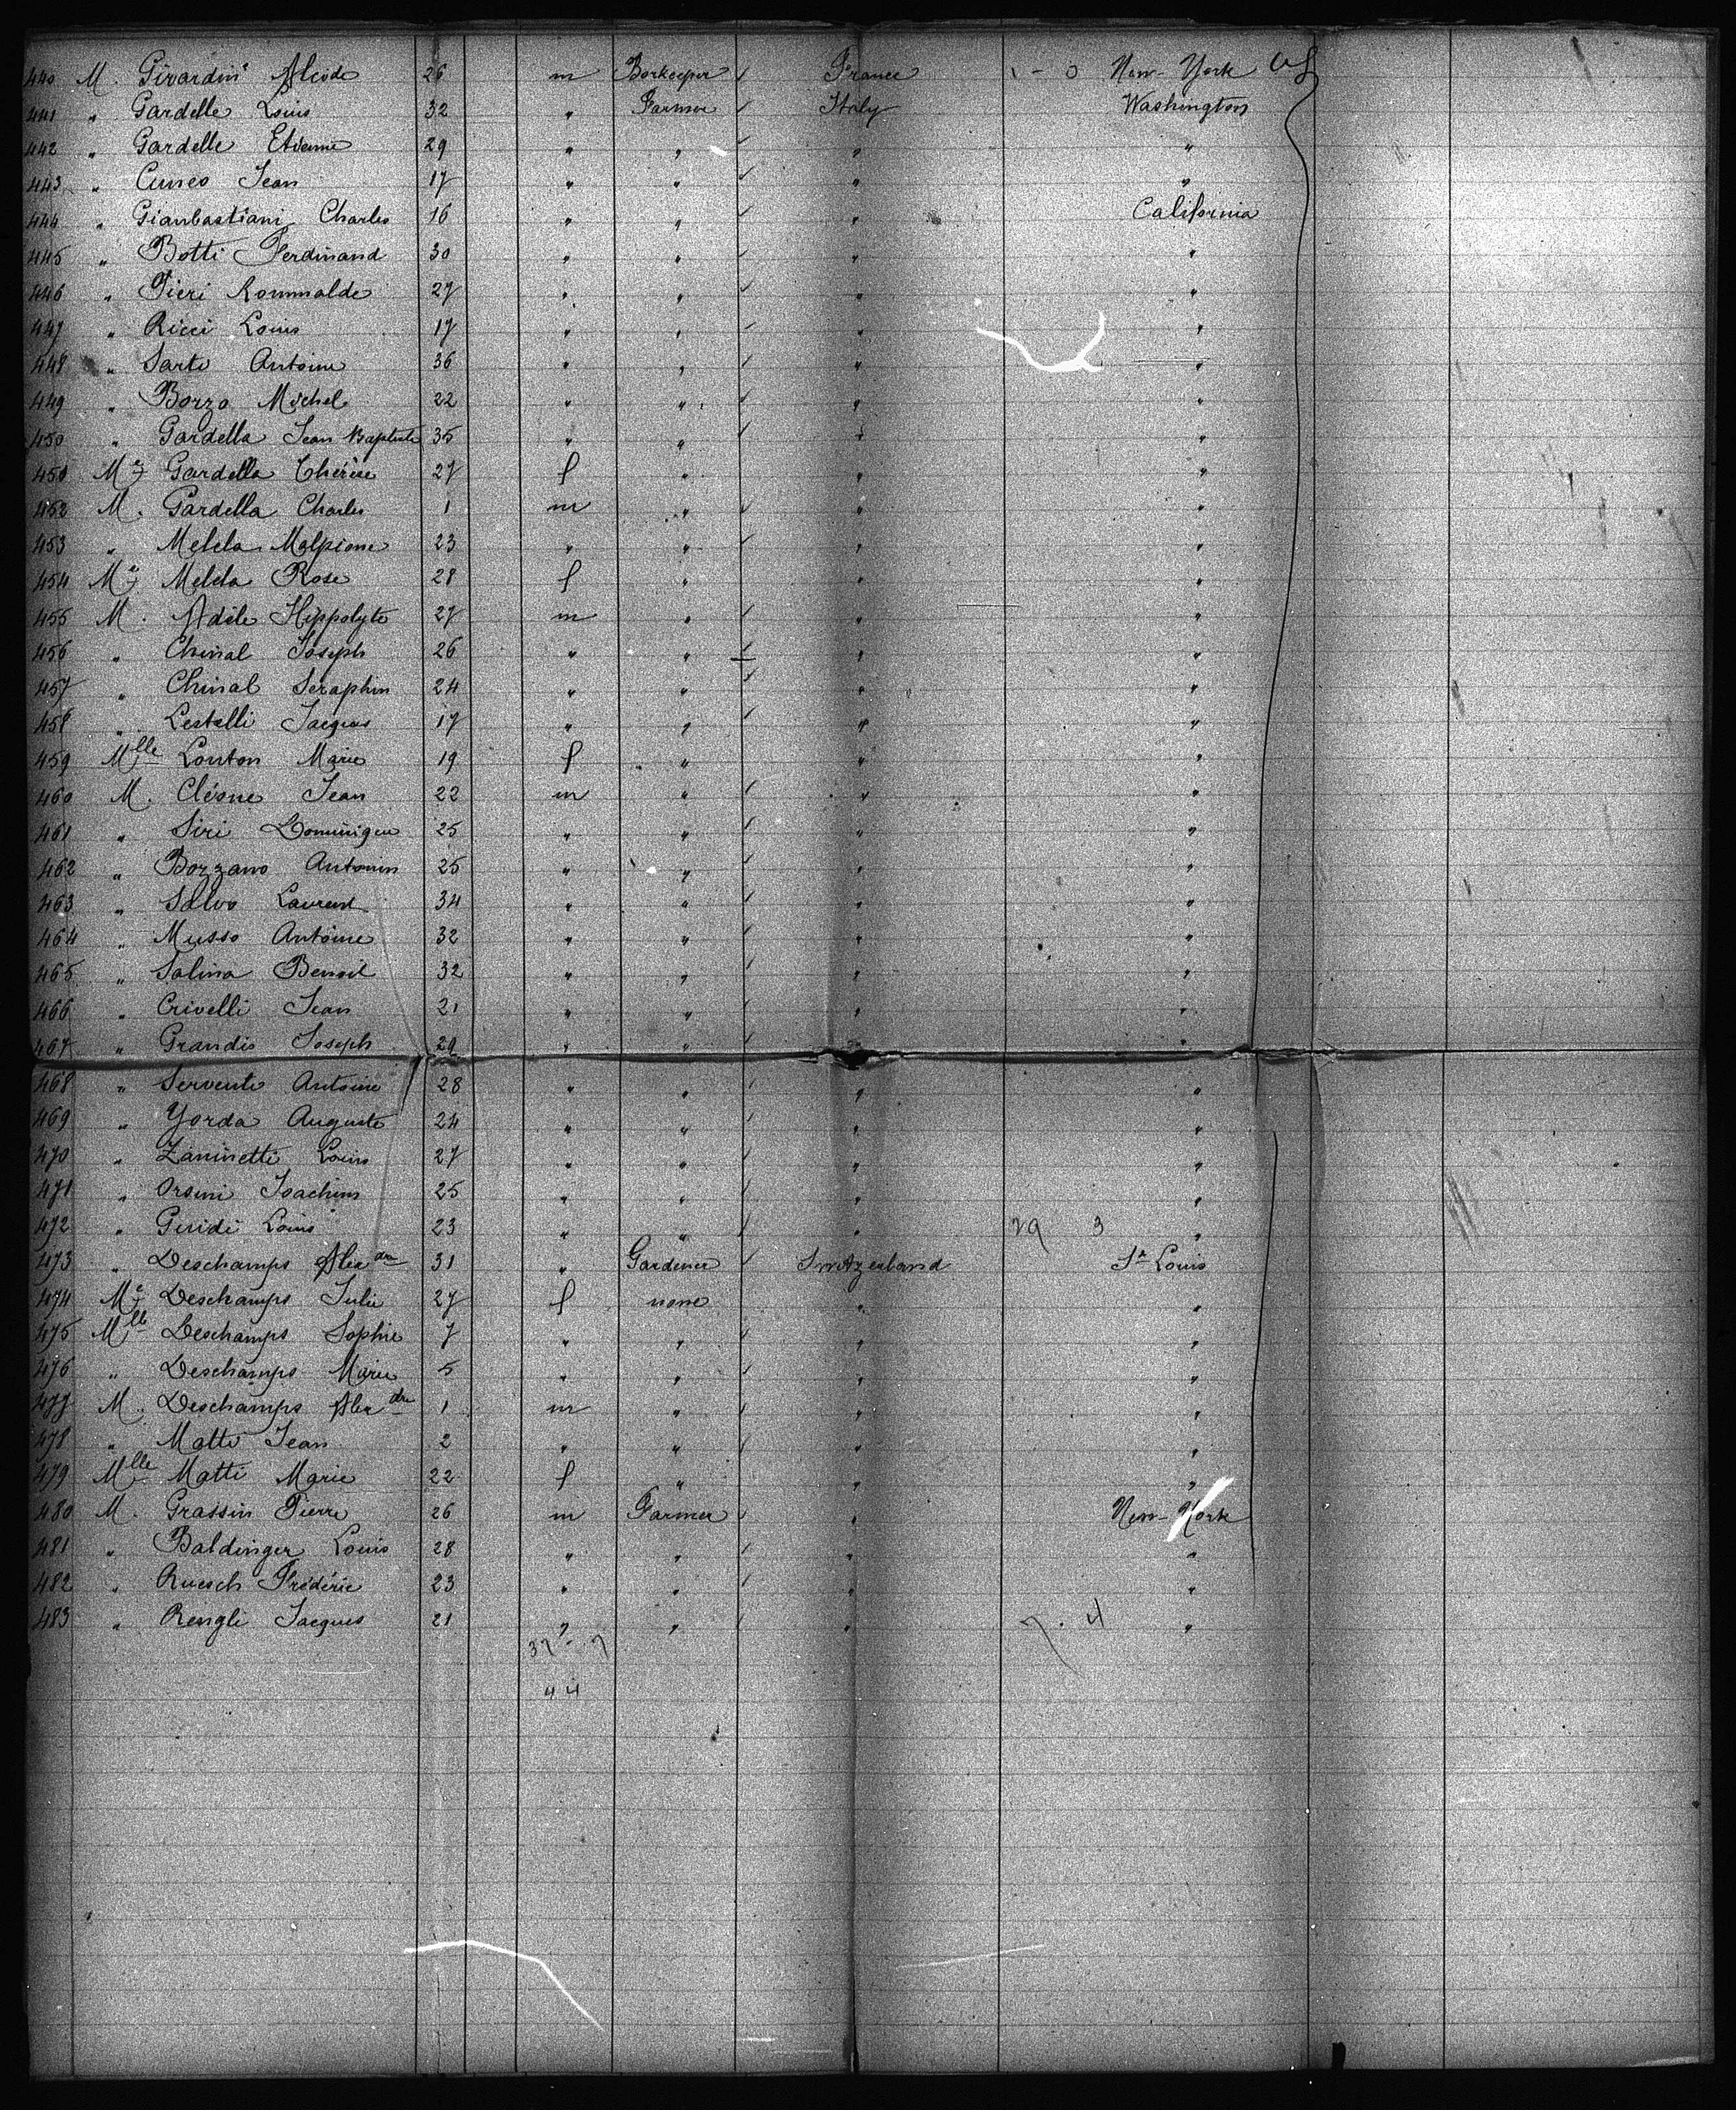 440 M. Girardin Alcide 26 m Barkeeper / France 1 - 0 New-York
441 " Gardelle Louis 32 " Farmer / Italy Washington
442 " Gardelle Etienne 29 " " / " "
443 " Cuneo Jean 17 " " / " "
444 " Gianbastiani Charles 16 " " / " California
445 " Botti Ferdinand 30 " " / " "
446 " Pieri Romualde 27 " " / " "
447 " Ricci Louis 17 " " / " "
448 " Sarti Antoine 36 " " / " "
449 " Bozzo Michel 22 " " / " "
450 " Gardella Jean Baptiste 35 " " / " "
450 Me Gardella Thérèse 27 f " " "
452 M. Gardella Charles 1 m " / " "
453 " Melela 23 " " / " "
454 Me Melela Rose 28 f " " "
455 M. Adèle Hippolyte 27 m " / " "
456 " Chinal Joseph 26 " " / " "
457 " Chinal Séraphin 24 " " / " "
458 " Lestelli Jacques 17 " " / " "
459 Mlle Louton Marie 19 f " " "
460 M. Cléone Jean 22 m " / " "
461 " Siri Dominique 25 " " / " "
462 " Bozzano Antonin 25 " " / " "
463 " Salvo Laurent 34 " " / " "
464 " Musso Antoine 32 " " / " "
465 " Salina Benoit 32 " " / " "
466 " Crivelli Jean 21 " " / " "
467 " Grandis Joseph 29 " " / " "
468 " Servente Antoine 28 " " / " "
469 " Yorda Auguste 24 " " / " "
470 " Zaninetti Louis 27 " " / " "
471 " Orsini Joachim 25 " " / " "
472 " Guidi Louis 23 " " / " 29 3 "
473 " Deschamps Alexdre 31 " Gardener / Switzerland St Louis
474 Me Deschamps Julie 27 f none " "
475 Mlle Deschamps Sophie 7 " " / " "
476 " Deschamps Marie 5 " " / " "
477 M. Deschamps Alexdre 1 m " / " "
478 " Matti Jean 2 " " / " "
479 Mlle Matti Marie 22 f " " "
480 M. Grassin Pierre 26 m Farmer / " New-York
481 " Baldinger Louis 28 " " / " "
482 " Ruesch Frédéric 23 " " / " "
483 " Rengli Jacques 21 " " / " 7 . 4 "
37 - 7
44